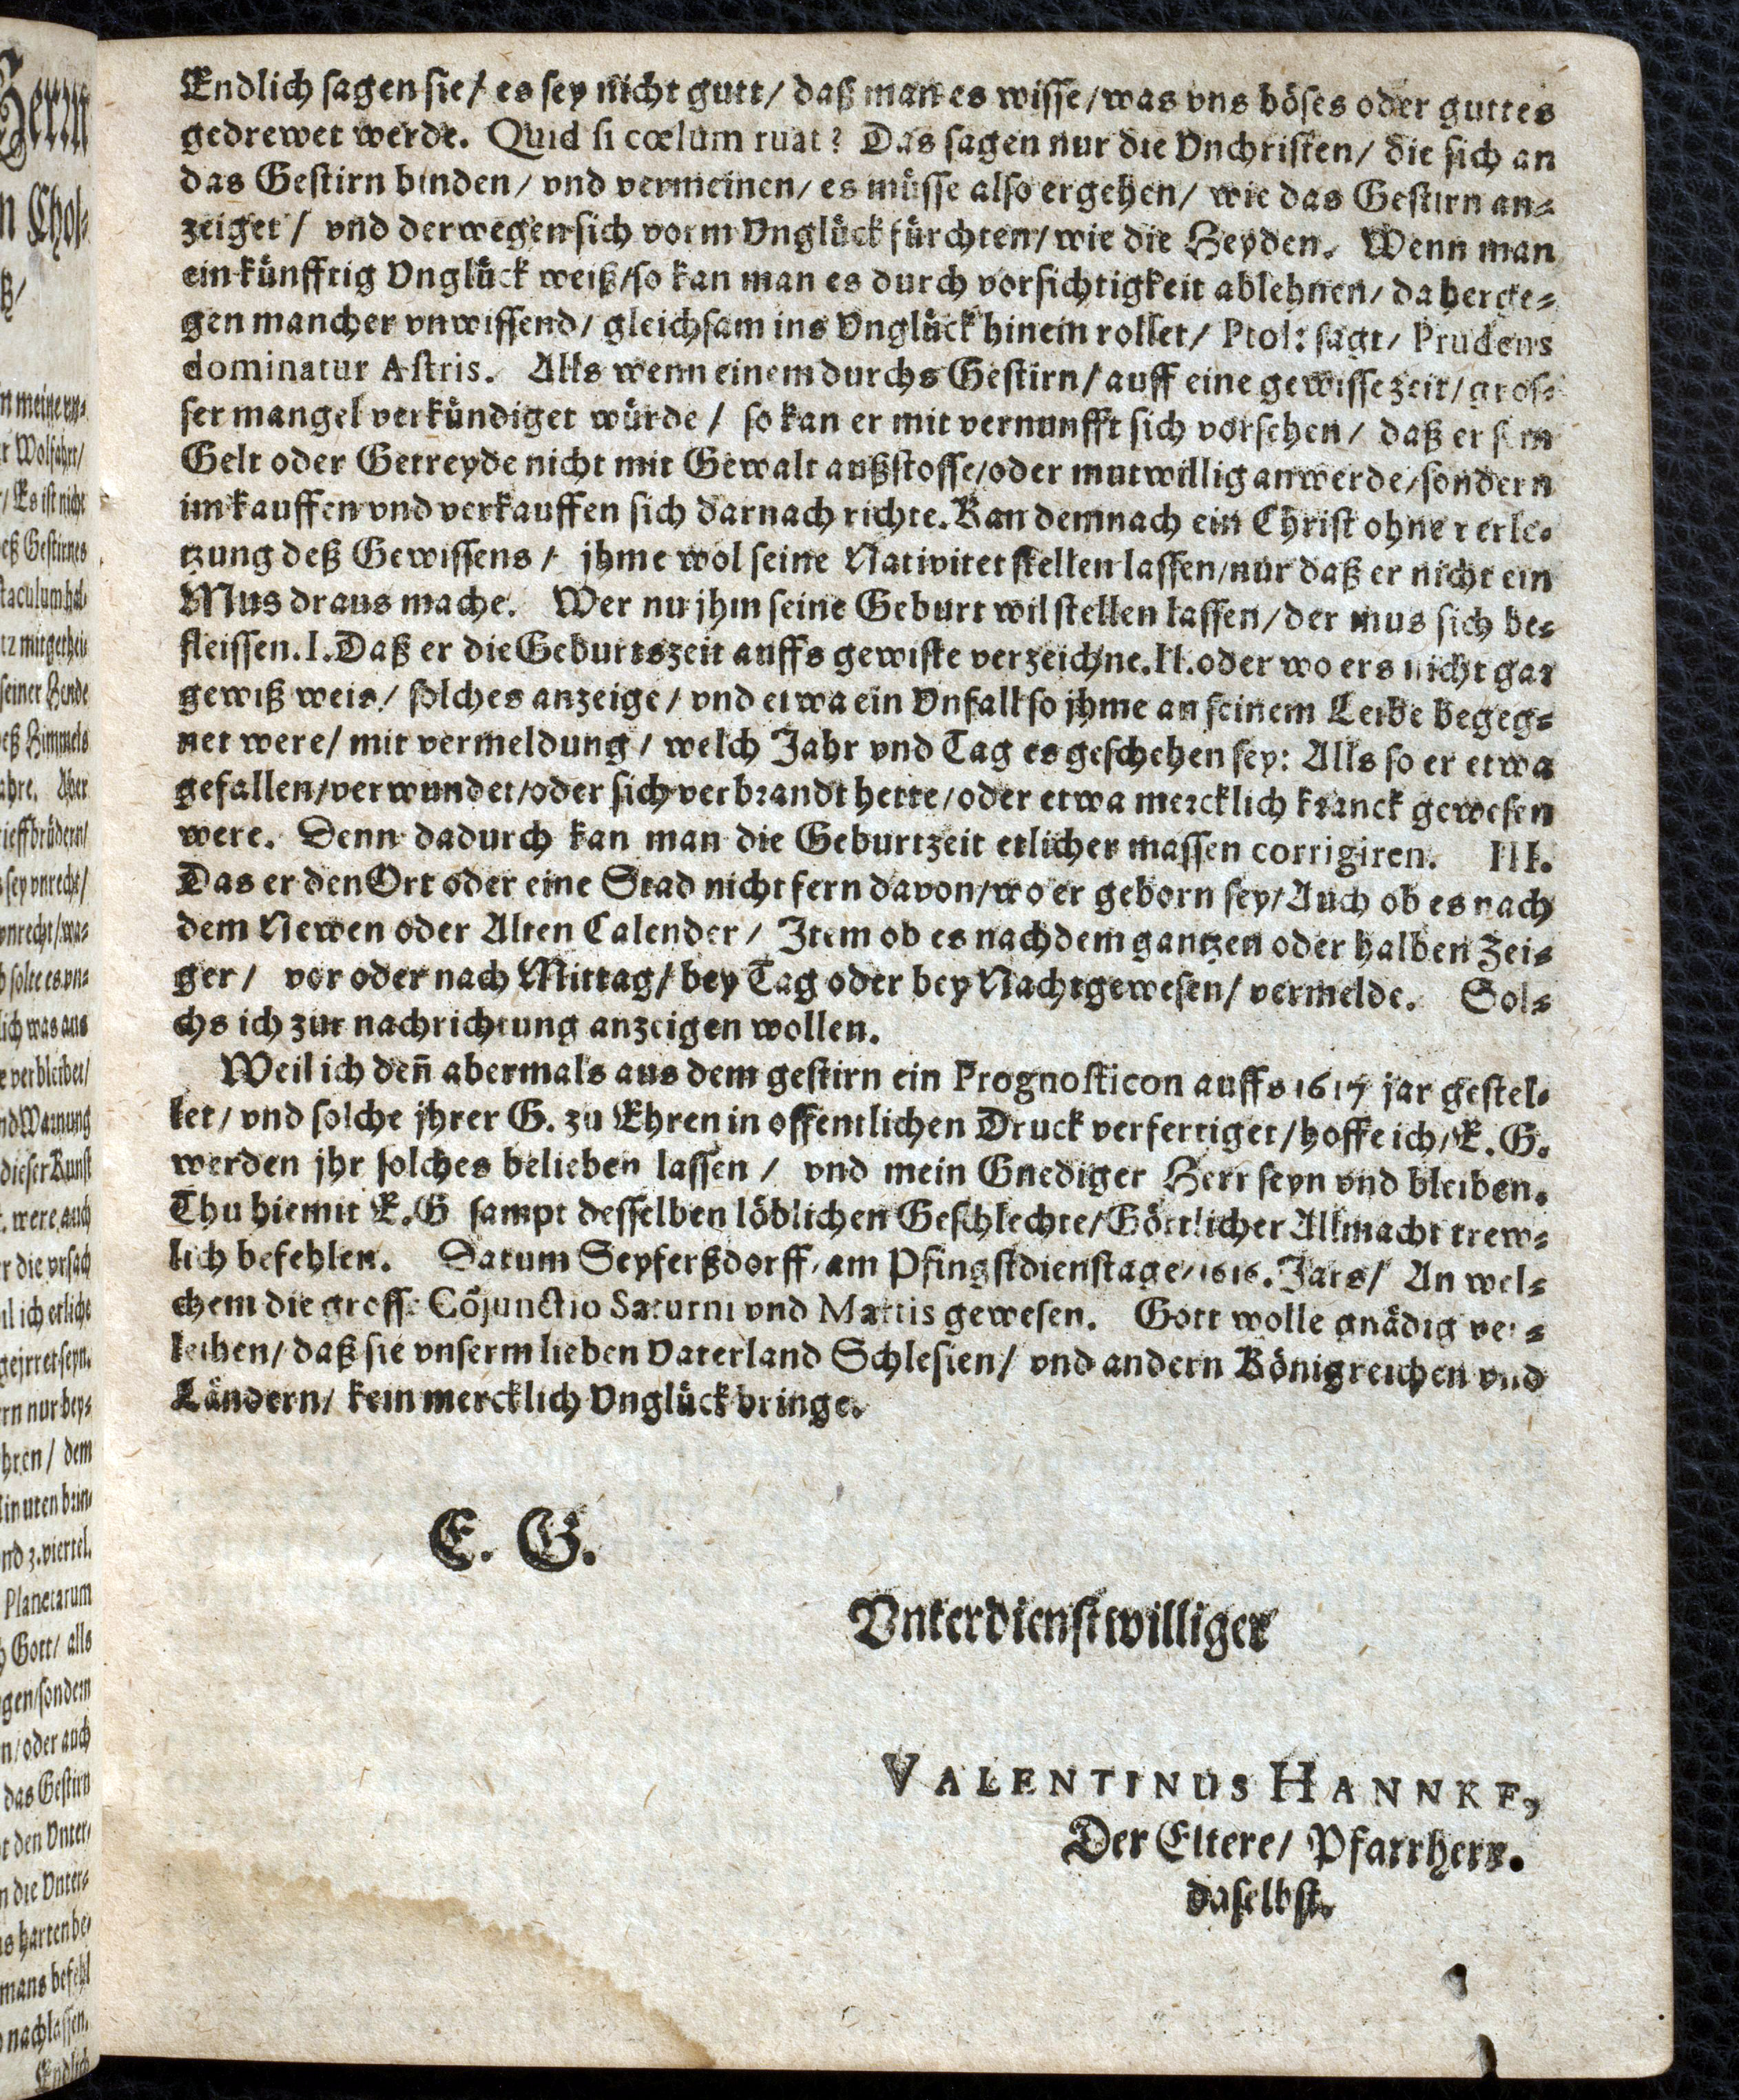 Endlich sagen sie/ es sey nicht gutt/ daß man es wisse/ was vns böses oder guttes
gedrewet werde. Quid si cœlum ruat? Das sagen nur die Vnchristen/ die sich an
das Gestirn binden/ vnd vermeinen/ es müsse also ergehen/ wie das Gestirn an⸗
zeiget/ vnd derwegen sich vorm Vnglück fürchten/ wie die Heyden. Wenn man
ein künfftig Vnglück weiß/ so kan man es durch vorsichtigkeit ablehnen/ da herge⸗
gen mancher vnwissend/ gleichsam ins Vnglück hinein rollet/ Ptol: sagt/ Prudens
dominatur Astris. Alls wenn einem durchs Gestirn/ auff eine gewisse zeit/ gros⸗
ser mangel verkündiget würde/ so kan er mit vernunfft sich vorsehen/ daß er sein
Gelt oder Getreyde nicht mit Gewalt außstosse/ oder mutwillig anwerde/ sondern
im kauffen vnd verkauffen sich darnach richte. Kan demnach ein Christ ohne verle⸗
tzung deß Gewissens/ jhme wol seine Nativitet stellen lassen/ nur daß er nicht ein
Mus draus mache. Wer nu jhm seine Geburt wil stellen lassen/ der mus sich be⸗
fleissen. I. Daß er die Geburtszeit auffs gewiste verzeichne. II. oder wo ers nicht gar
gewiß weis/ solches anzeige/ vnd etwa ein Vnfall so jhme an seinem Leibe begeg⸗
net were/ mit vermeldung/ welch Jahr vnd Tag es geschehen sey: Alls so er etwa
gefallen/ verwundet/ oder sich verbrandt hette/ oder etwa mercklich kranck gewesen
were. Denn dadurch kan man die Geburtzeit etlicher massen corrigiren. III.
Das er den Ort oder eine Stad nicht fern davon/ wo er geborn sey/ Auch ob es nach
dem Newen oder Alten Calender/ Item ob es nach dem gantzen oder halben Zei⸗
ger/ vor oder nach Mittag/ bey Tag oder bey Nacht gewesen/ vermelde. Sol⸗
chs ich zur nachrichtung anzeigen wollen.
Weil ich deñ abermals aus dem gestirn ein Prognosticon auffs 1617 jar gestel⸗
let/ vnd solche jhrer G. zu Ehren in offentlichen Druck verfertiget/ hoffe ich/ E. G.
werden jhr solches belieben lassen/ vnd mein Gnediger Herr seyn vnd bleiben.
Thu hiemit E. G sampt desselben löblichen Geschlechte/ Göttlicher Allmacht trew⸗
lich befehlen. Datum Seyferßdorff/ am Pfingstdienstage/ 1616. Jars/ An wel⸗
chem die grosse Cõjunctio Saturni vnd Martis gewesen. Gott wolle gnädig ver⸗
leihen/ daß sie vnserm lieben Vaterland Schlesien/ vnd andern Königreichen vnd
Ländern/ kein mercklich Vnglück bringe.
E. G.
Vnterdienstwilliger
VALENTINUS HANNKE,
Der Eltere/ Pfarrherr.
daselbst.